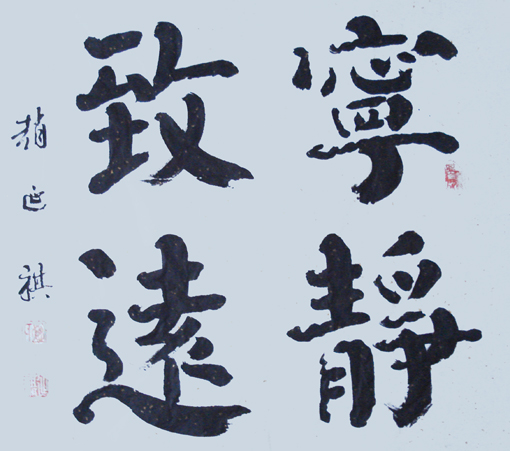 寧靜
致遠
趙正祺